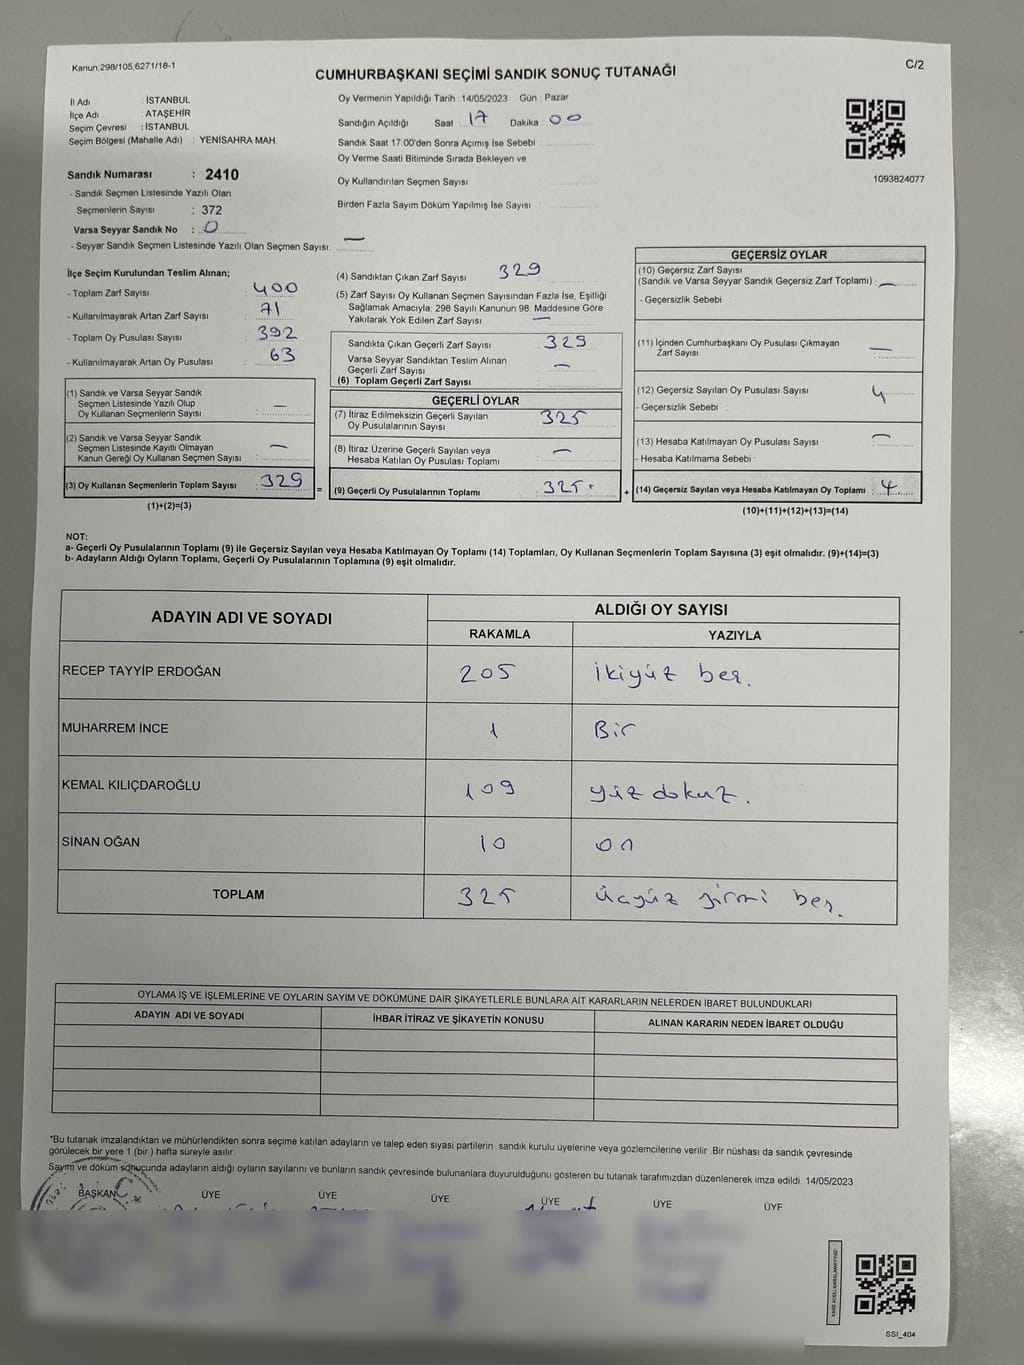 Kanun;298/105,6271/18-1
C/2
CUMHURBAŞKANI SEÇİMİ SANDIK SONUÇ TUTANAĞI
İl Adı : İSTANBUL
İlçe Adı : ATAŞEHİR
Seçim Çevresi : İSTANBUL
Seçim Bölgesi (Mahalle Adı) : YENİSAHRA MAH.
Sandık Numarası : 2410
- Sandık Seçmen Listesinde Yazılı Olan
Seçmenlerin Sayısı : 372
Varsa Seyyar Sandık No : 0
- Seyyar Sandık Seçmen Listesinde Yazılı Olan Seçmen Sayısı: —
Oy Vermenin Yapıldığı Tarih : 14/05/2023 Gün : Pazar
Sandığın Açıldığı Saat : 17 Dakika : 00
Sandık Saat 17:00'den Sonra Açımış İse Sebebi :
Oy Verme Saati Bitiminde Sırada Bekleyen ve
Oy Kullandırılan Seçmen Sayısı :
Birden Fazla Sayım Döküm Yapılmış İse Sayısı :
1093824077
İlçe Seçim Kurulundan Teslim Alınan;
- Toplam Zarf Sayısı : 400
- Kullanılmayarak Artan Zarf Sayısı : 71
- Toplam Oy Pusulası Sayısı : 392
- Kullanılmayarak Artan Oy Pusulası : 63
(1) Sandık ve Varsa Seyyar Sandık
Seçmen Listesinde Yazılı Olup
Oy Kullanan Seçmenlerin Sayısı : —
(2) Sandık ve Varsa Seyyar Sandık
Seçmen Listesinde Kayıtlı Olmayan
Kanun Gereği Oy Kullanan Seçmen Sayısı : —
(3) Oy Kullanan Seçmenlerin Toplam Sayısı : 329 =
(1)+(2)=(3)
(4) Sandıktan Çıkan Zarf Sayısı 329
(5) Zarf Sayısı Oy Kullanan Seçmen Sayısından Fazla İse, Eşitliği
Sağlamak Amacıyla; 298 Sayılı Kanunun 98. Maddesine Göre
Yakılarak Yok Edilen Zarf Sayısı —
Sandıkta Çıkan Geçerli Zarf Sayısı : 329
Varsa Seyyar Sandıktan Teslim Alınan
Geçerli Zarf Sayısı : —
(6) Toplam Geçerli Zarf Sayısı
GEÇERLİ OYLAR
(7) İtiraz Edilmeksizin Geçerli Sayılan
Oy Pusulalarının Sayısı : 325
(8) İtiraz Üzerine Geçerli Sayılan veya
Hesaba Katılan Oy Pusulası Toplamı : —
(9) Geçerli Oy Pusulalarının Toplamı : 325 +
GEÇERSİZ OYLAR
(10) Geçersiz Zarf Sayısı
(Sandık ve Varsa Seyyar Sandık Geçersiz Zarf Toplamı) : —
- Geçersizlik Sebebi :
(11) İçinden Cumhurbaşkanı Oy Pusulası Çıkmayan
Zarf Sayısı : —
(12) Geçersiz Sayılan Oy Pusulası Sayısı : 4
- Geçersizlik Sebebi :
(13) Hesaba Katılmayan Oy Pusulası Sayısı : —
- Hesaba Katılmama Sebebi :
(14) Geçersiz Sayılan veya Hesaba Katılmayan Oy Toplamı : 4
(10)+(11)+(12)+(13)=(14)
NOT:
a- Geçerli Oy Pusulalarının Toplamı (9) ile Geçersiz Sayılan veya Hesaba Katılmayan Oy Toplamı (14) Toplamları, Oy Kullanan Seçmenlerin Toplam Sayısına (3) eşit olmalıdır. (9)+(14)=(3)
b- Adayların Aldığı Oyların Toplamı, Geçerli Oy Pusulalarının Toplamına (9) eşit olmalıdır.
ADAYIN ADI VE SOYADI ALDIĞI OY SAYISI
RAKAMLA YAZIYLA
RECEP TAYYİP ERDOĞAN 205 İkiyüz beş.
MUHARREM İNCE 1 Bir
KEMAL KILIÇDAROĞLU 109 yüz dokuz.
SİNAN OĞAN 10 on
TOPLAM 325 üçyüz yirmi beş.
OYLAMA İŞ VE İŞLEMLERİNE VE OYLARIN SAYIM VE DÖKÜMÜNE DAİR ŞİKAYETLERLE BUNLARA AİT KARARLARIN NELERDEN İBARET BULUNDUKLARI
ADAYIN ADI VE SOYADI İHBAR İTİRAZ VE ŞİKAYETİN KONUSU ALINAN KARARIN NEDEN İBARET OLDUĞU
*Bu tutanak imzalandıktan ve mühürlendikten sonra seçime katılan adayların ve talep eden siyasi partilerin sandık kurulu üyelerine veya gözlemcilerine verilir. Bir nüshası da sandık çevresinde
görülecek bir yere 1 (bir ) hafta süreyle asılır.
Sayım ve döküm sonucunda adayların aldığı oyların sayılarını ve bunların sandık çevresinde bulunanlara duyurulduğunu gösteren bu tutanak tarafımızdan düzenlenerek imza edildi. 14/05/2023
BAŞKAN ÜYE ÜYE ÜYE ÜYE ÜYE ÜYE
SSI_404